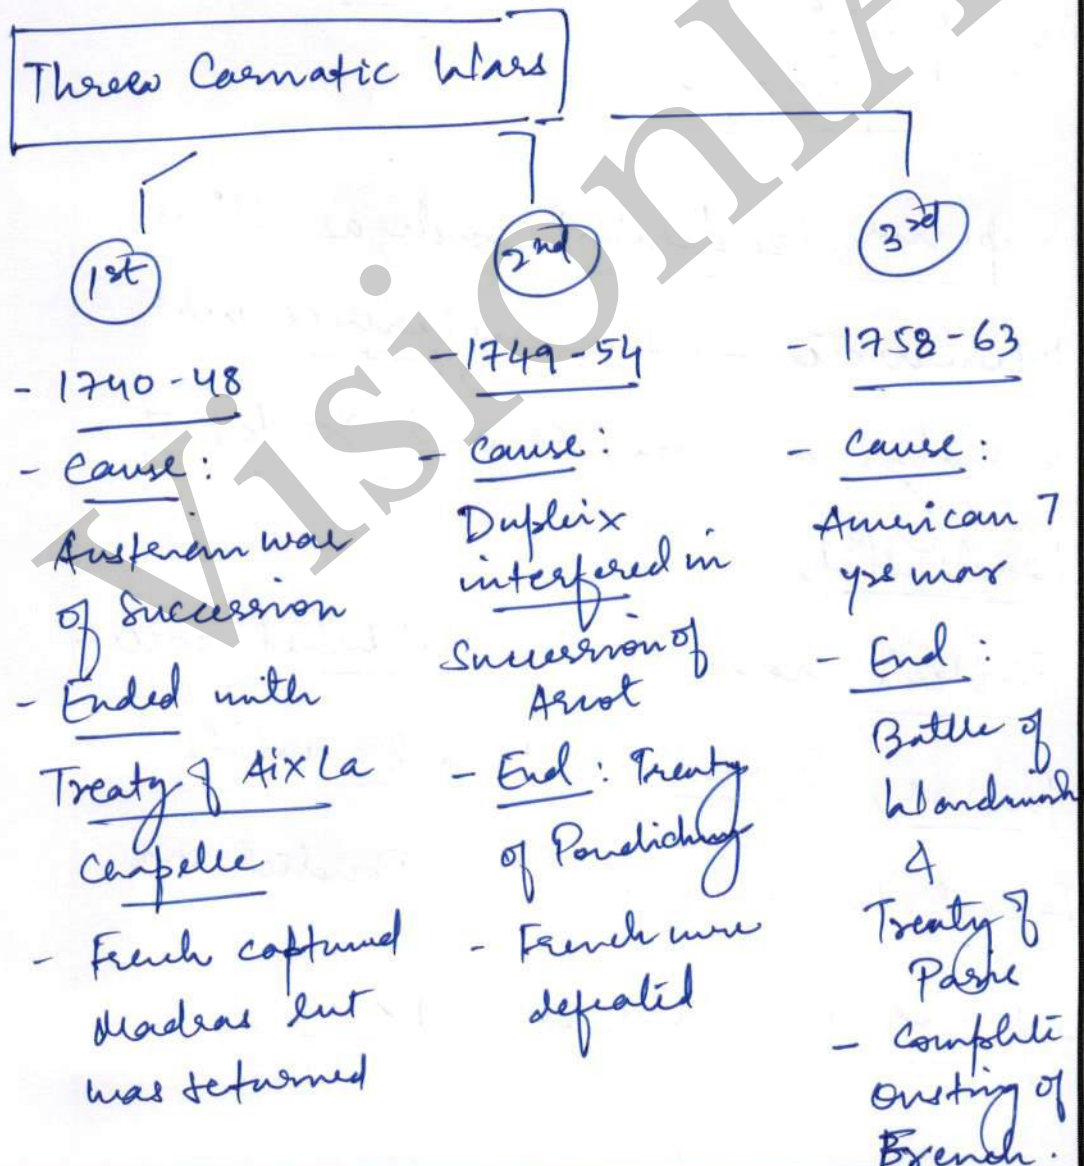 Three Carnatic Wars
1st
- 1740-48
- Cause:
Austerian war
of Succession
- Ended with
Treaty of Aix La
Chapelle
- French captured
Madras but
was returned
2nd
- 1749-54
- Cause:
Dupleix
interfered in
Succession of
Arcot
- End: Treaty
of Pondicherry
- French were
defeated
3rd
- 1758-63
- Cause:
American 7
yrs war
- End:
Battle of
Wandiwash
&
Treaty of
Paris
- Complete
Ousting of
French.
VisionIA